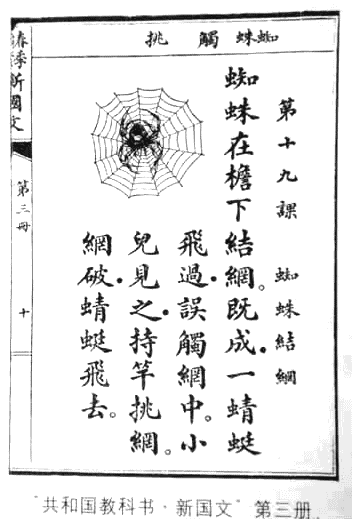 蜘蛛 觸 挑
第十九課 蜘蛛結網
蜘蛛在檐下結網。既成•一蜻蜓
飛過•誤觸網中。小
兒見之•持竿挑網。
網破•蜻蜓飛去。
季新國文
第三冊
十
“共和国教科书·新国文”第三册